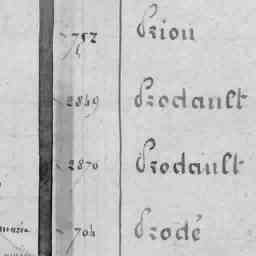 752 Priou
2849 Prodault
2870 Prodault
704 Prodé